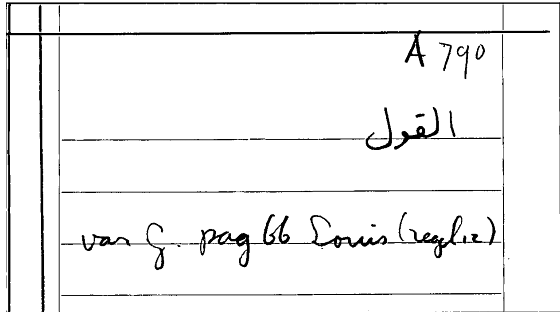 A 790
القول
var G. pag 66 Louis (reglie)